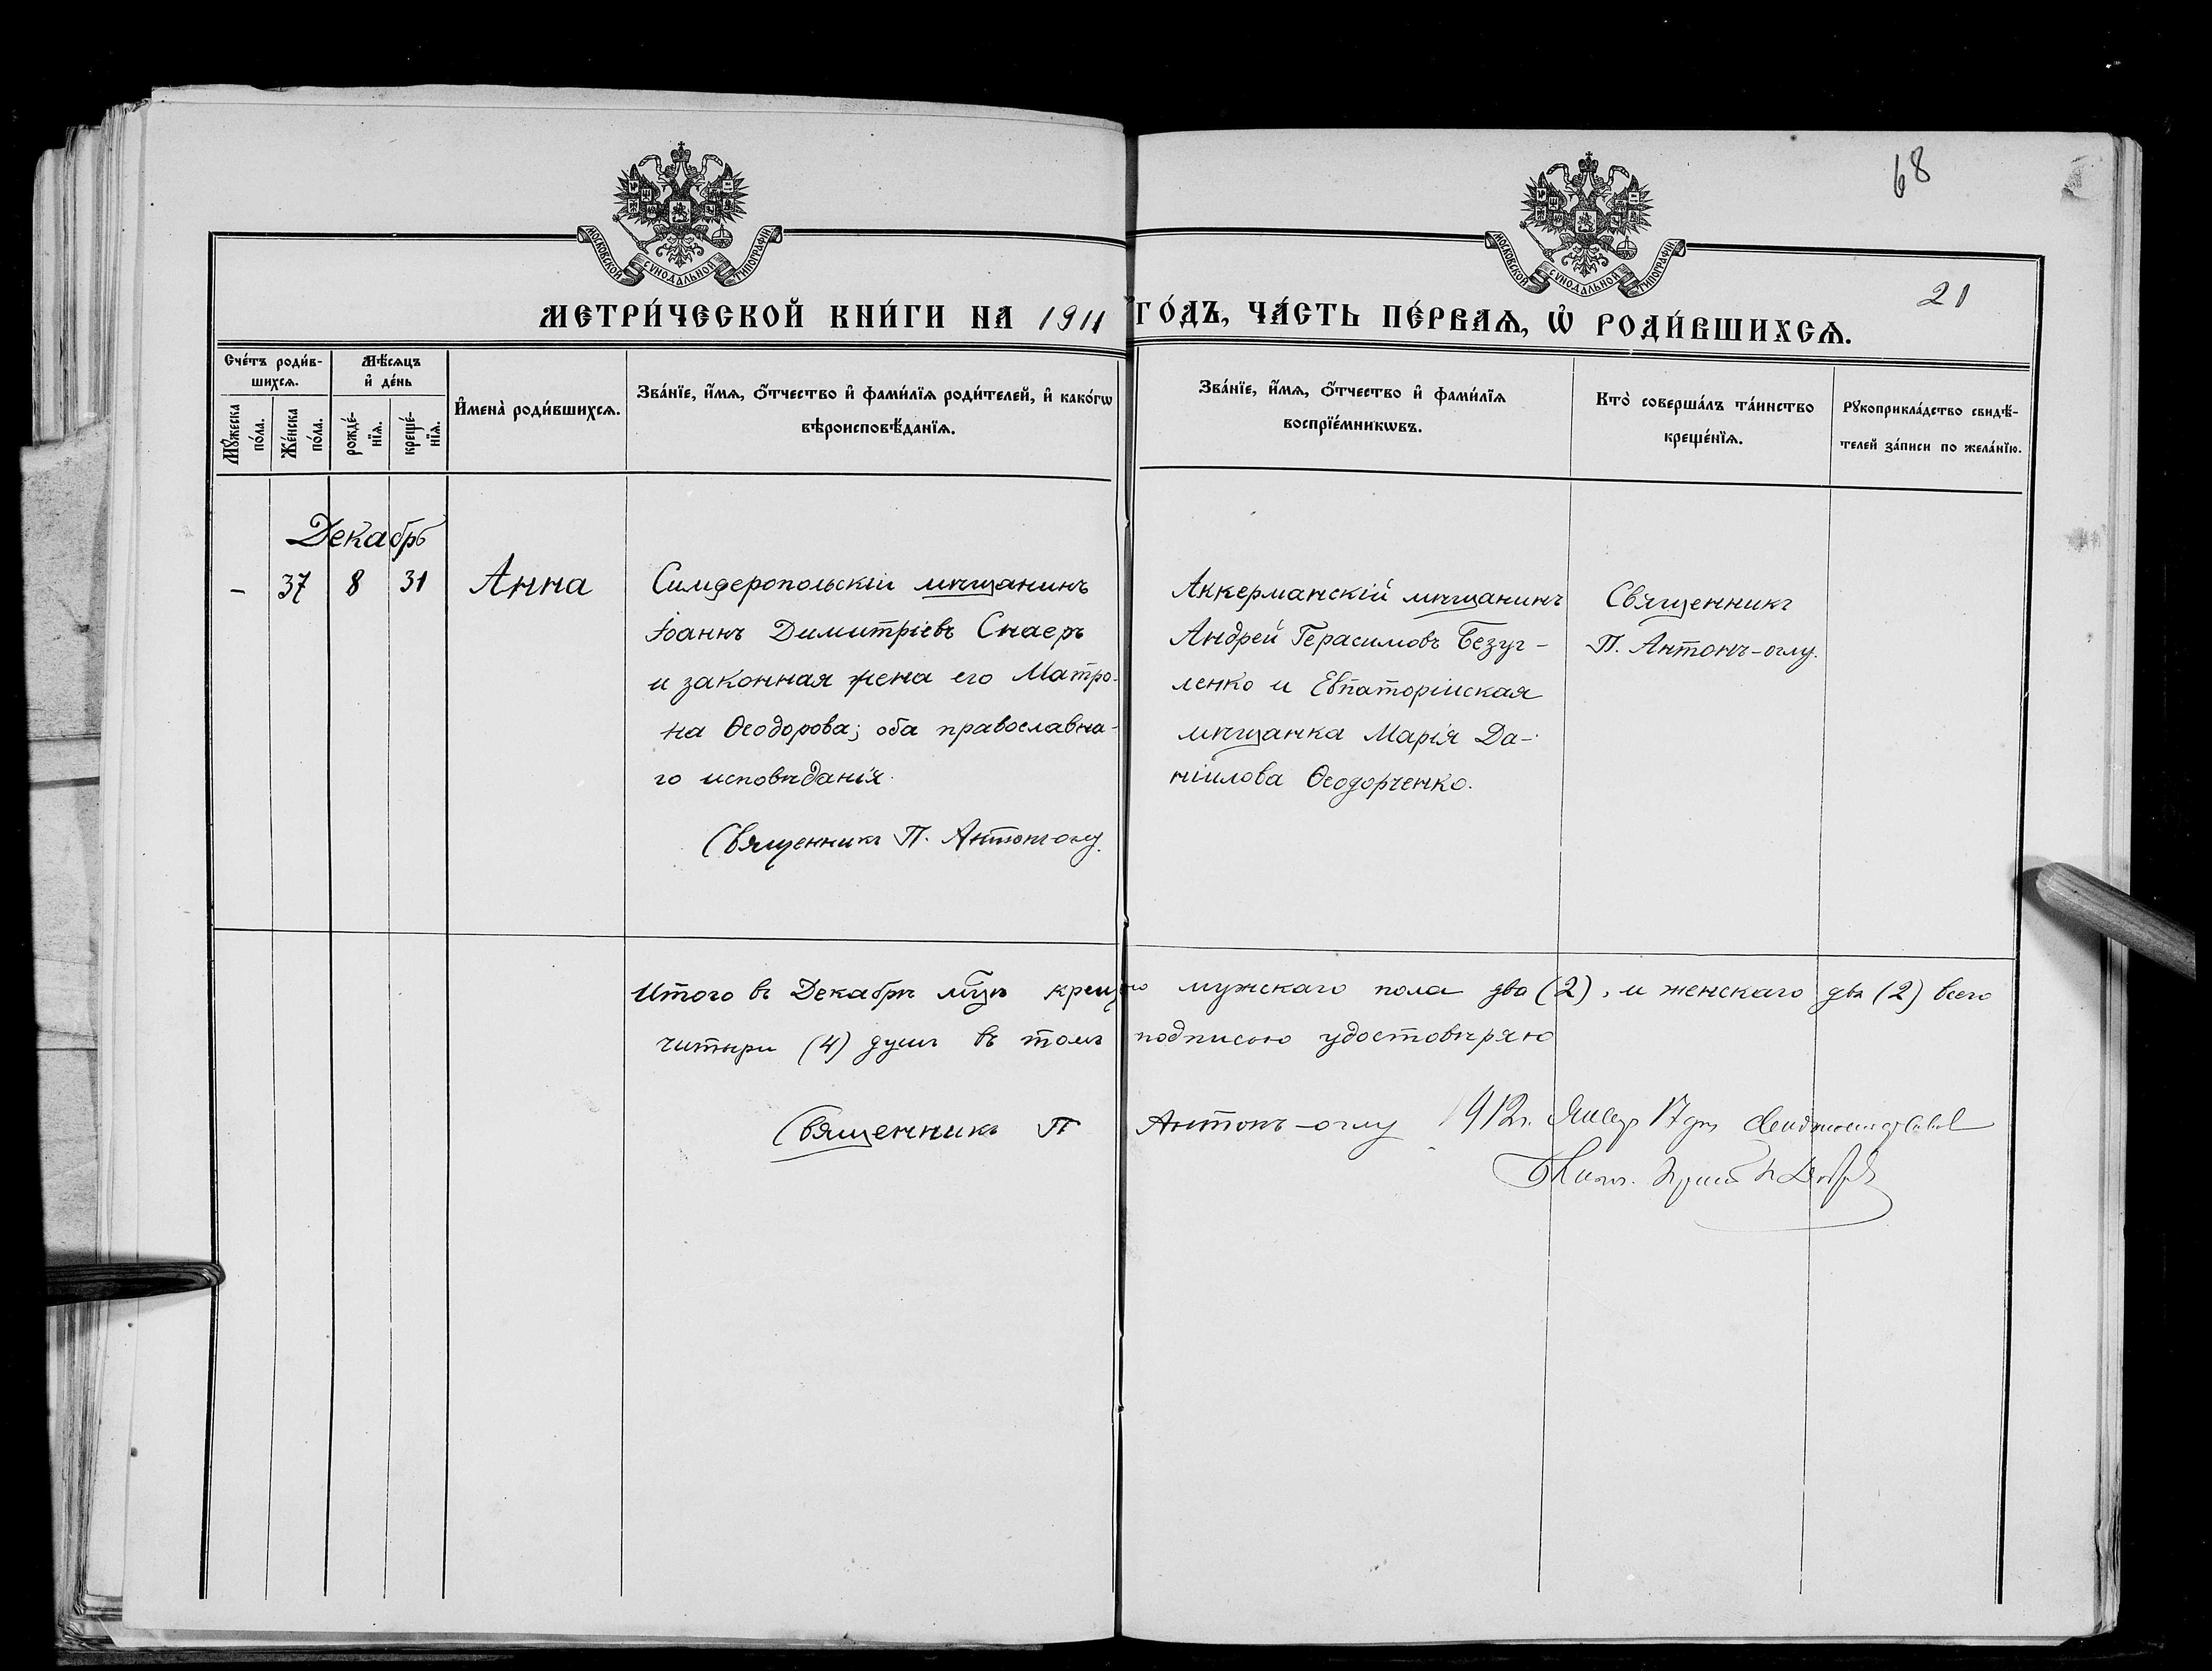 68
21
МОСКОВСКОЙ СѴНОДАЛЬНОЙ ТИПОГРАФІИ
МОСКОВСКОЙ СѴНОДАЛЬНОЙ ТИПОГРАФІИ
МЕТРИ́ЧЕСКОЙ КНИ́ГИ НА 1911 ГО́ДЪ, ЧА́СТЬ ПЕ́РВАѦ, Ѡ҆ РОДИ́ВШИХСѦ.
Сче́тъ роди́в-
шихсѧ.
Мѣ́сѧцъ
и҆ де́нь
Мꙋ́жеска
по́ла.
Же́нска
по́ла.
рожде́-
нїѧ.
креще́-
нїѧ.
И҆мена̀ роди́вшихсѧ.
Зва́нїе, и҆́мѧ, ѻ҆́тчество и҆ фами́лїѧ роди́телей, и҆ како́гѡ
вѣроисповѣ́данїѧ.
Зва́нїе, и҆́мѧ, ѻ҆́тчество и҆ фами́лїѧ
воспрїе́мникѡвъ.
Кто̀ соверша́лъ та́инство
креще́нїѧ.
Рꙋкоприкла́дство свидѣ́-
телей за́писи по жела́нїю.
Декабрь
- 37 8 31 Анна
Симферопольскій мѣщанинъ
Іоаннъ Димитріевъ Снаеръ
и законная жена его Матро-
на Ѳеодорова; оба православна-
го исповѣданія.
Священникъ П. Антонъ-оглу.
Аккерманскій мѣщанинъ
Андрей Герасимовъ Безуг-
ленко и Евпаторійская
мѣщанка Марія Да-
ніилова Ѳеодорченко.
Священникъ
П. Антонъ-оглу.
Итого въ Декабрѣ мцѣ крещено мужскаго пола два (2), и женскаго два (2) всего
читыри (4) душъ въ томъ подписью удостовѣряю
Священникъ П Антонъ-оглу
1912 г.